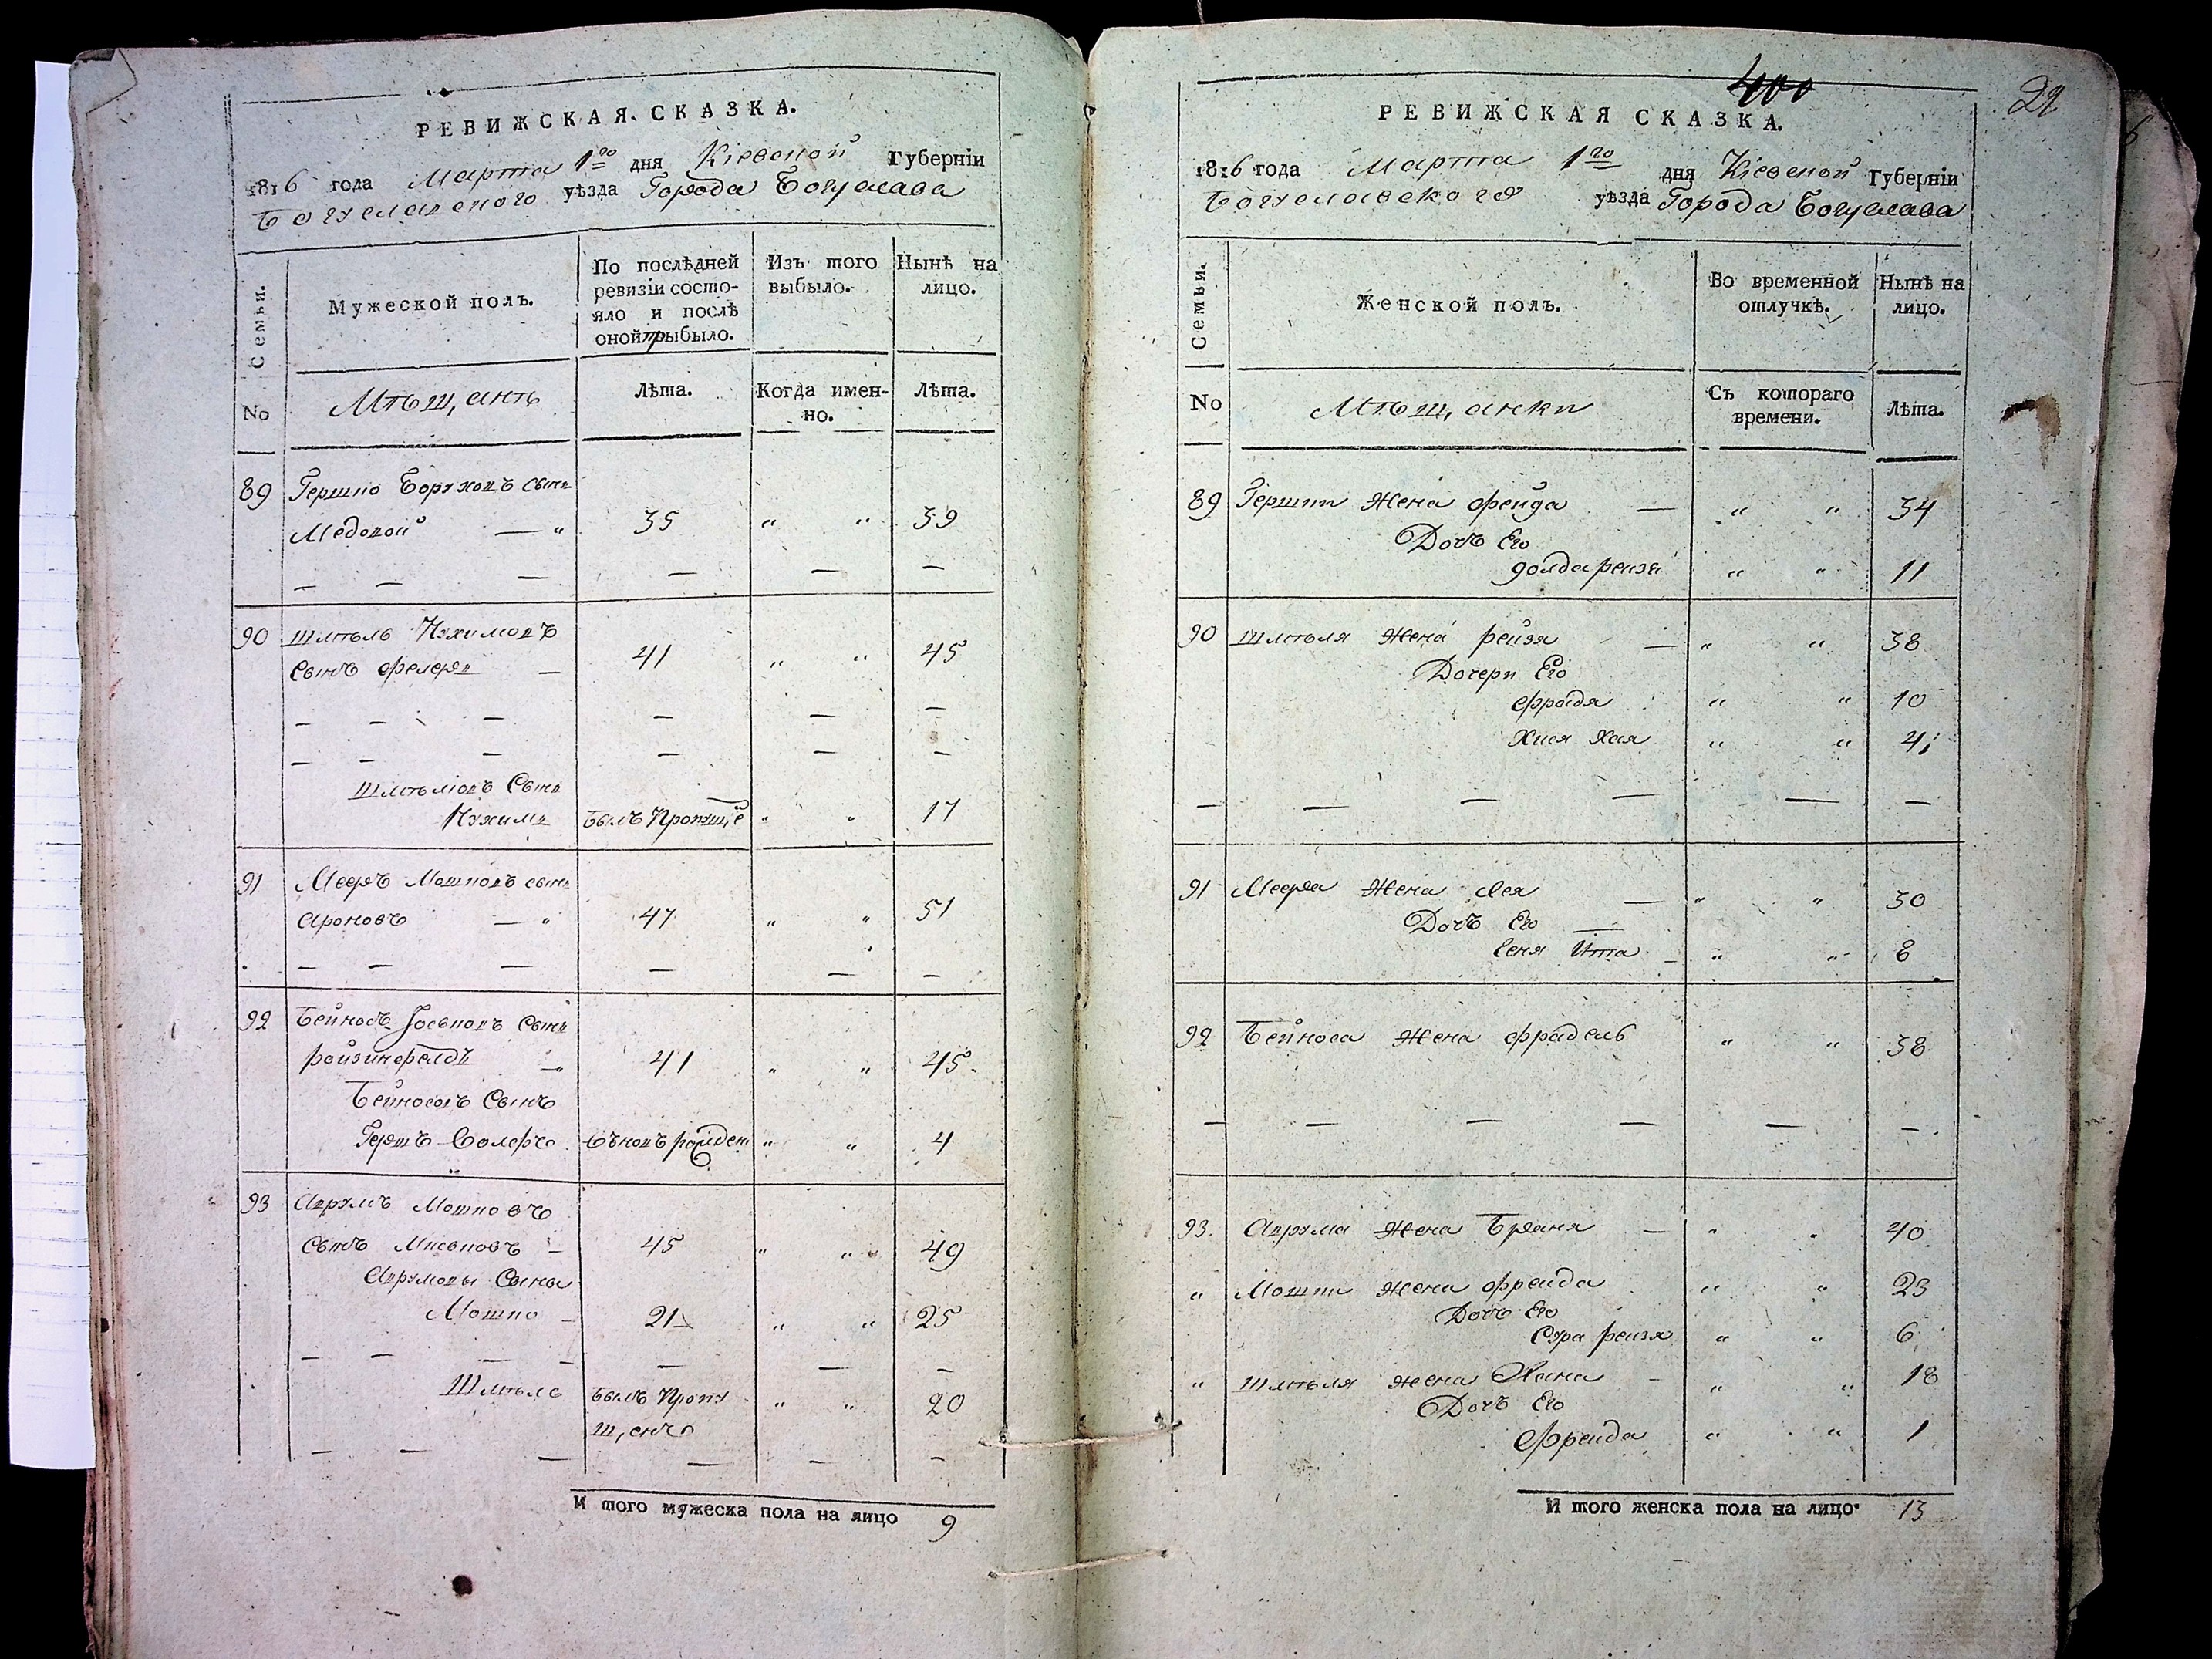 РЕВИЖСКАЯ СКАЗКА.
1816 года Марта 1го дня Кіевской Губерніи
Богуславского уѣзда Города Богуслава
Семьи.
Мужеской полъ.
По послѣдней ревизіи состояло и послѣ оной прыбыло.
Изъ того выбыло.
Нынѣ на лицо.
No
Мѣщанъ
Лѣта.
Когда именно.
Лѣта.
89 Гершко Боруховъ сынъ
Медовой — " 35 " " 39
— — — — — —
90 Шмѣль Нухимовъ
Сынъ — 41 " " 45
— — — — — —
— — — — — —
Шмѣлiовъ Сынъ
Нухимъ былъ " " 17
91 Мееръ Мошковъ сынъ
Ароновъ — " 47 " " 51
— — — — — —
92 Бейносъ Іоськовъ Сынъ
Ройзинфелдъ " 41 " " 45
Бейносовъ Сынъ
Гершъ Волфъ вновь рожден " " 4
93 Аврумъ Мошковъ
Сынъ Миськовъ — 45 " " 49
Аврумовы Сыны
Мошко — 21 " " 25
— — — — — — —
Шмѣль былъ Пропу " " 20
щенъ
— — — — — —
И того мужеска пола на лицо 9
400
29
РЕВИЖСКАЯ СКАЗКА.
1816 года Марта 1го дня Кіевской Губерніи
Богуславского уѣзда Города Богуслава
Семьи.
Женской полъ.
Во временной отлучкѣ.
Нынѣ на лицо.
No
Мѣщанки
Съ котораго времени.
Лѣта.
89 Гершки Жена Фейда — " " 34
Дочь Его
Голда рейзя " " 11
90 Шмѣля Жена рейзя — " " 38
Дочери Его
Фрайдя " " 10
Хися Хая " " 4
— — — — — —
91 Меера Жена Лея — " " 30
Дочь Его —
Геня Ита — " " 8
92 Бейноса Жена Фрадель " " 38
— — — — — —
93. Аврума Жена Браня — " " 40
" Мошки Жена Фрейда " " 23
Дочь Его
Сура рейзя " " 6
" Шмѣля жена Хана — " " 18
Дочь Его
Фрейда " " 1
И того женска пола на лицо 13